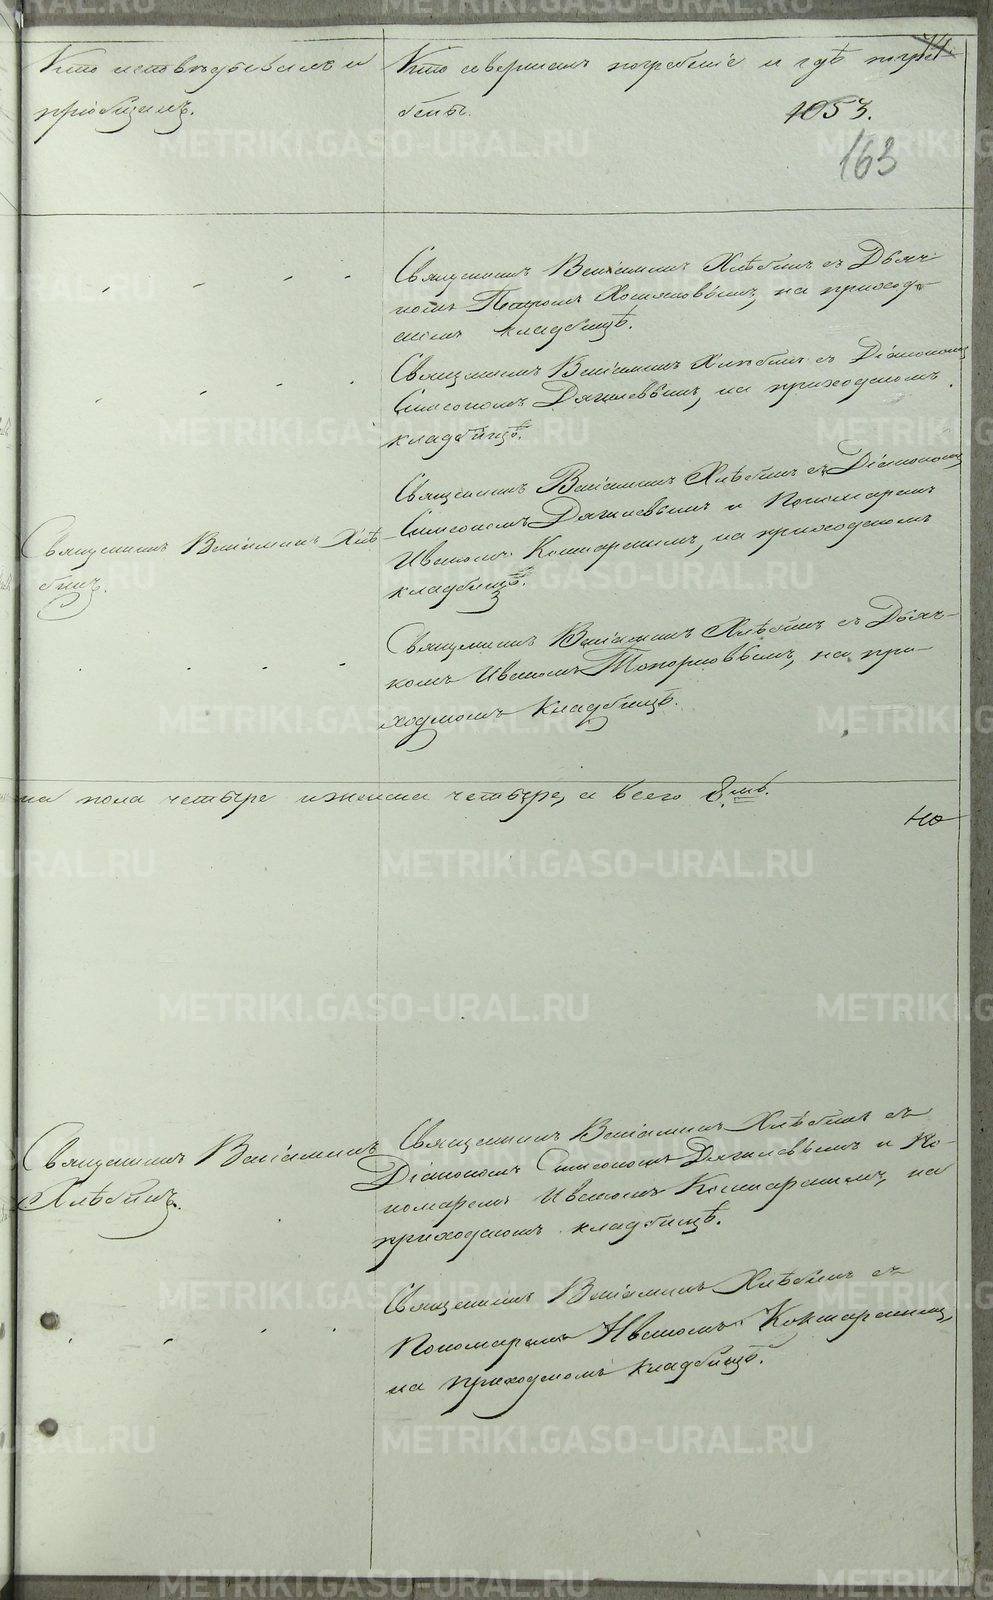 Кто исповѣдывалъ и
пріобщилъ.
Кто совершалъ погребеніе и гдѣ погре
бены.
1053.
163
Священникъ Веніаминъ Хлѣбинъ съ Дьяч
комъ на приход
скомъ кладбищѣ.
Священникъ Веніаминъ Хлѣбинъ съ Діакономъ
Симеономъ Дягилевымъ, на приходскомъ
кладбищѣ.
Священникъ Веніаминъ Хлѣ
бинъ.
Священникъ Веніаминъ Хлѣбинъ съ Діакономъ
Симеономъ Дягилевымъ и Пономаремъ
Иваномъ на приходскомъ
кладбищѣ.
Священникъ Веніаминъ Хлѣбинъ съ Дьяч-
комъ Иваномъ Топорковымъ, на при-
ходскомъ кладбищѣ.
пола четыре и женска четыре, а всего 8.мь.
Но
Священникъ Веніаминъ
Хлѣбинъ.
Священникъ Веніаминъ Хлѣбинъ съ
Діакономъ Симеономъ Дягилевымъ и По-
номаремъ Иваномъ на
приходскомъ кладбищѣ.
Священникъ Веніаминъ Хлѣбинъ съ
Пономаремъ Иваномъ
на приходскомъ кладбищѣ.
METRIKI.GASO-URAL.RU